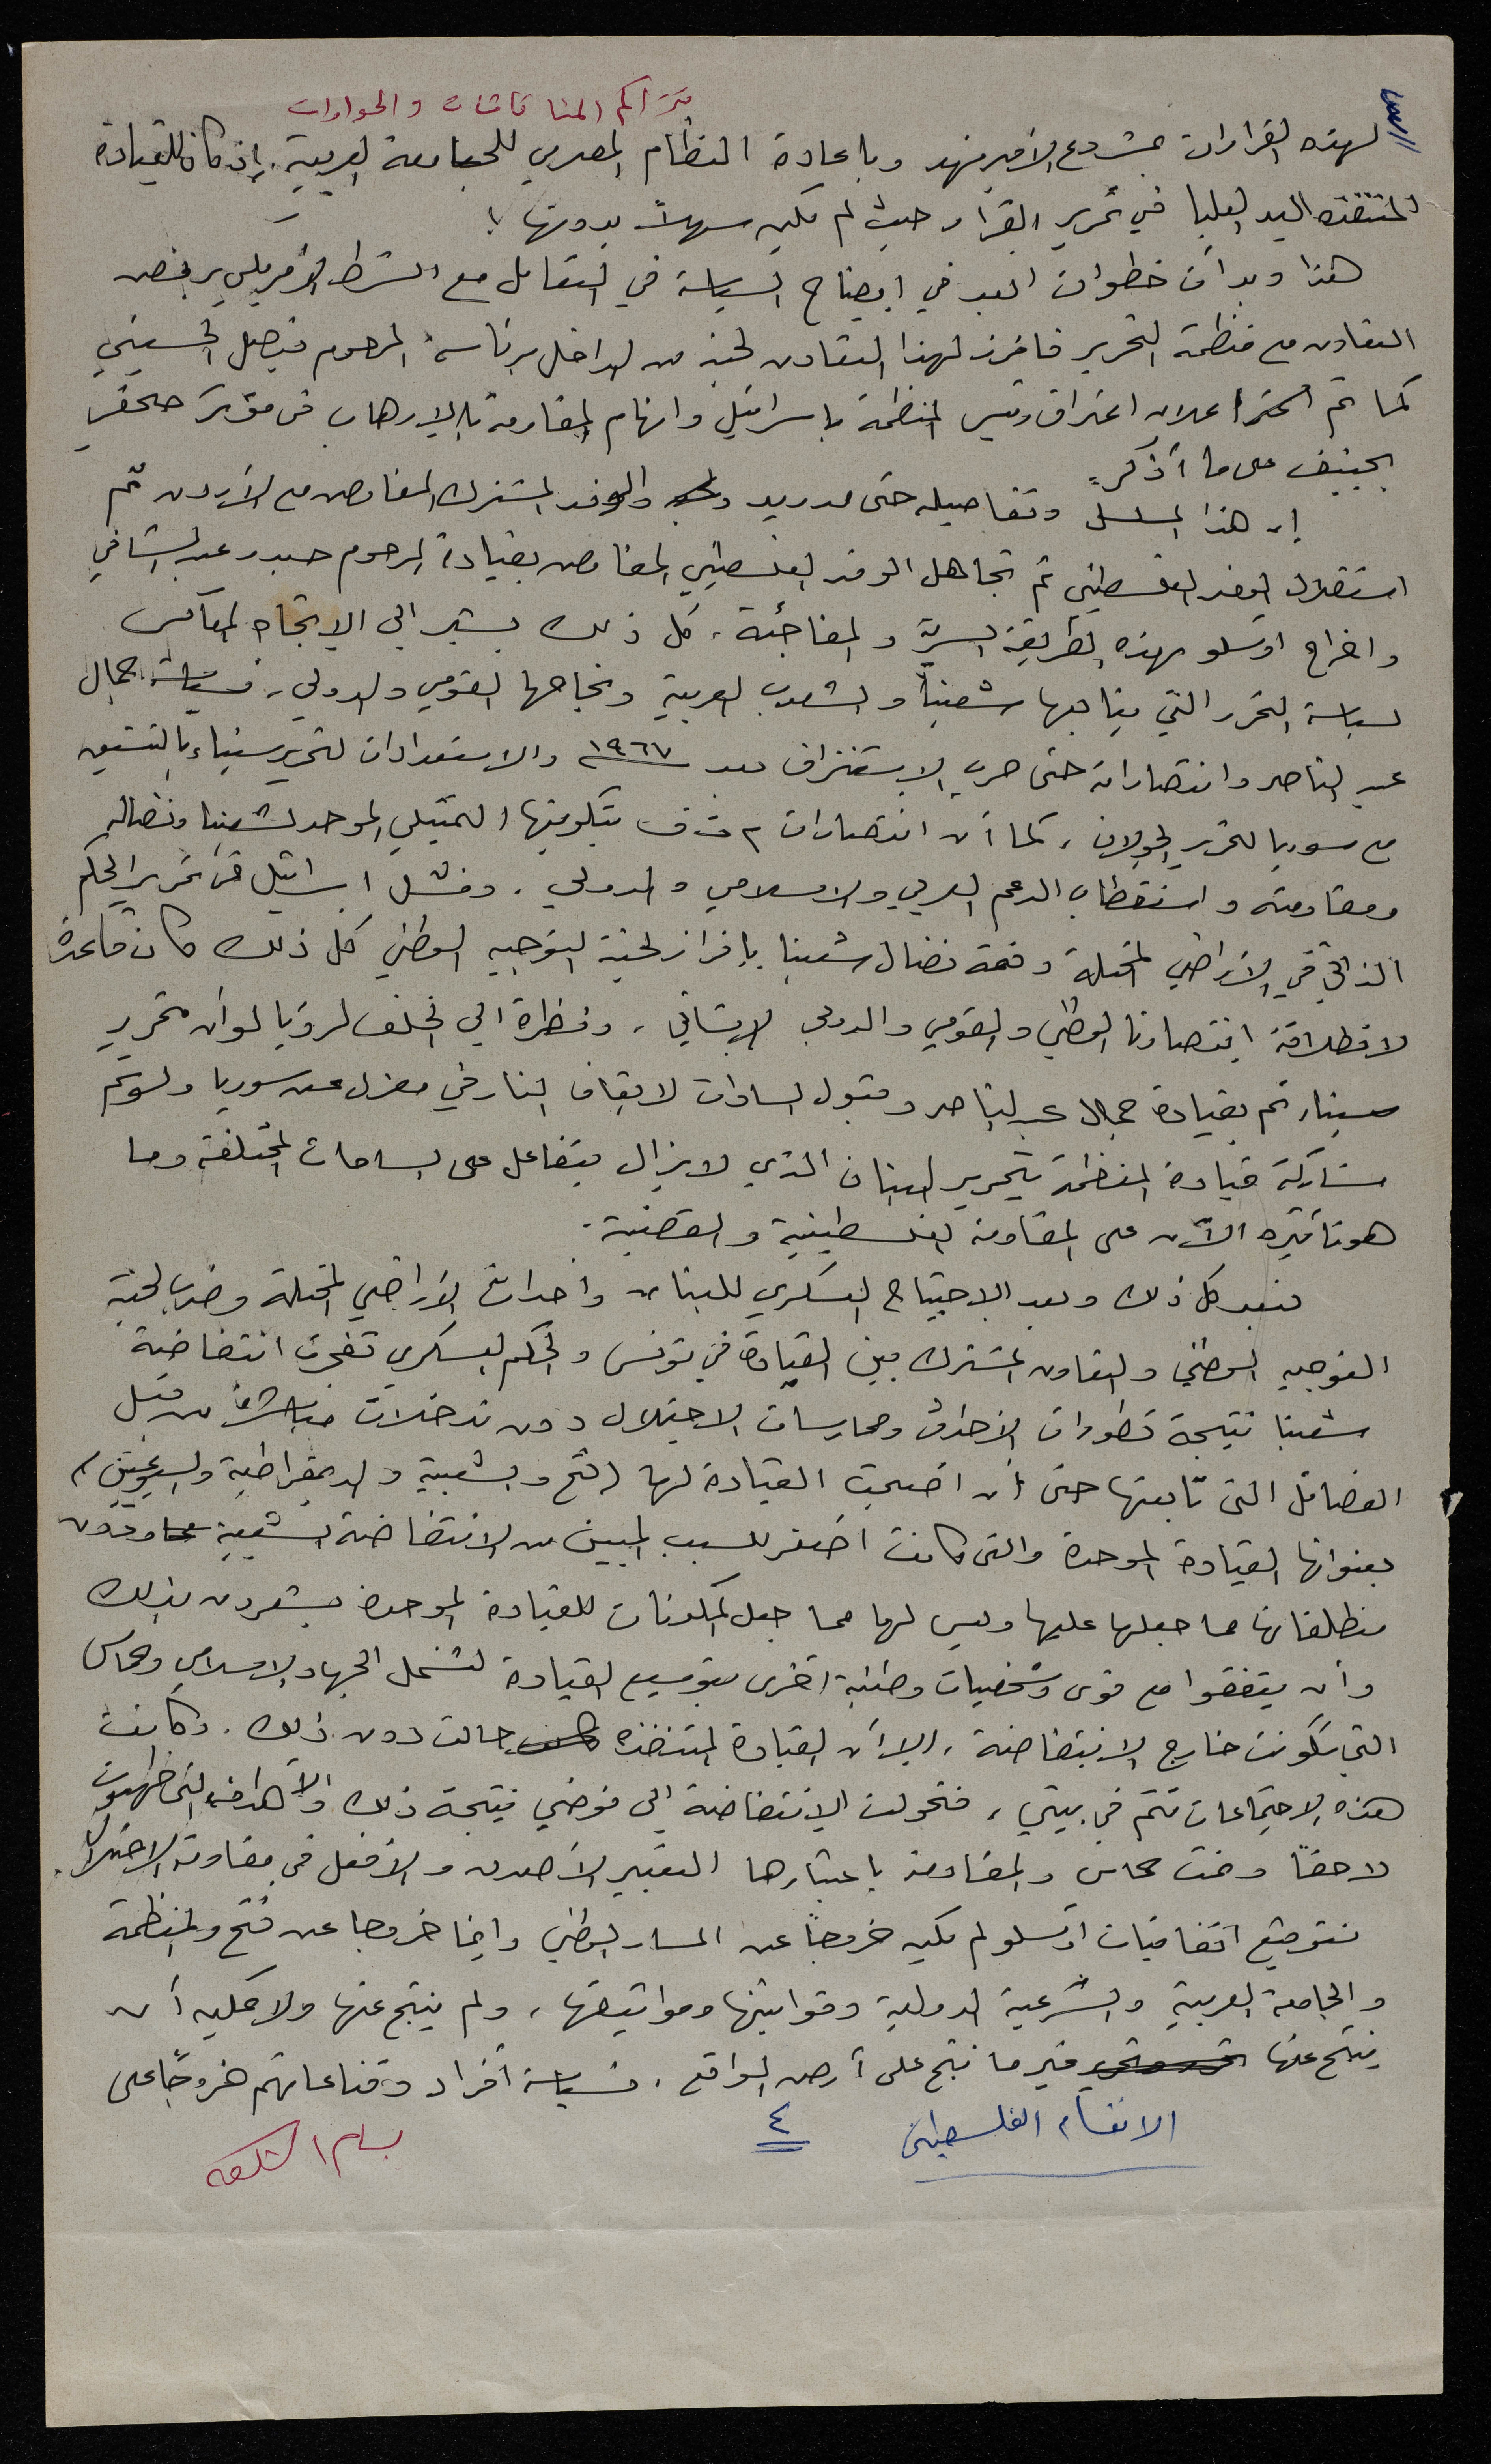 تتراكم المناقشات والحوارات
لهذه القرارات بمشروع الأمير فهد وباعادة النظام المصري للجامعة العربية. إذ كان للقيادة
المتنفذه اليد العليا في تمرير القرار حيث لم يكن سهلاً بدونها !
هذا وبدأت خطوات البعد في ايضاح السياسة في التعامل مع الشرط الأمريكي برفض
التعاون مع منظمة التحرير فافرز لهذا التعاون لجنة من الداخل برئاسة المرحوم فيصل الحسيني
كما تم اعلان اعتراف رئيس المنظمة باسرائيل واتهام المقاومة بالارهاب في مؤتمر صحفي
بجنيف على ما أذكر.
إن هذا المسلسل وتفاصيله حتى مدريد والوفد المشترك المفاوض مع الأردن ثم
استقلال الوفد الفلسطيني ثم تجاهل الوفد الفلسطيني المفاوض بقيادة المرحوم حيدر عبد الشافي
واخراج اوسلو بهذه الطريقة السريّة والمفاجئة، كل ذلك يشير الى الاتجاه المعاكس
لسياسة التحرر التي يتابعها شعبنا والشعوب العربية ونجاحها القومي والدولي، فسياسة جمال
عبد الناصر وانتصاراته حتى حرب الاستنزاف بعد ١٩٦٧ والاستعدادات لتحرير سيناء بالتنسيق
مع سوريا لتحرير الجولان، كما أن انتصارات م ت ف بتكوينها التمثيلي الموحد لشعبنا ونضاله
ومقاومته واستقطاب الدعم العربي والاسلامي والدولي. وفشل اسرائيل في تمرير الحكم
الذاتي في الأراضي المحتلة وقمة نضال شعبنا بإفراز لجنة التوجيه الوطني كل ذلك كان قاعدة
لانطلاقة انتصارنا الوطني والقومي والدولي الإنساني، ونظرة الى الخلف لرؤيا لو أن تحرير
سيناء تم بقيادة جمال عبد الناصر وقبول السادات لايقاف النار في معزل عن سوريا ولو تم
مشاركة قيادة المنظمة بتحرير لبنان الذي لا يزال يتفاعل على الساحات المختلفة وما
هو تأثيره الآن على المقاومة الفلسطينية والقضية.
فبعد كل ذلك وبعد الاجتياح العسكري للبنان وأحداث الأراضي المحتلة وضرب لجنة
التوجيه الوطني والتعاون المشترك بين القيادة في تونس والحكم العسكري تفجرت انتفاضة
شعبنا نتيجة تطورات الأحداث وممارسات الاحتلال دون تدخلات مباشرة من قبل
الفصائل التي تابعتها حتى أن اضحت القيادة لها (فتح والشعبية والديمقراطية والشيوعيين)
بعنوانها القيادة الموحدة والتي كانت اضعف للسبب المبين من الانتفاضة الشعبية ودون
منطلقاتها مما جعلها عليها وليس لها مما جعل المكونات للقيادة الموحدة يشعرون بذلك
وأن يتفقوا مع قوى وشخصيات وطنية اخرى بتوسيع القيادة لتشمل الجهاد الاسلامي وحماس
التي تكونت خارج الانتفاضة، إلا أن القيادة المتنفذه حالت دون ذلك. وكانت
هذه الاجتماعات تتم في بيتي، فتحولت الانتفاضة الى فوضى نتيجة ذلك والأهداف التي ظهرت
لاحقاً ونمت حماس والمقاومة باعتبارها التعبير الأصدق والافعل في مقاومة الاحتلال.
فتوقيع اتفاقيات اوسلو لم يكن خروجاً عن المسار الوطني وانما خروجا عن فتح والمنظمة
والجامعة العربية والشرعية الدولية وقوانينها ومواثيقها، ولم ينتج عنها ولا يمكن أن
ينتج عنها غير ما نتج على أرض الواقع، فسياسة أفراد وقناعاتهم خروجاً على
الانقسام الفلسطيني
٤
بسام الشكعه